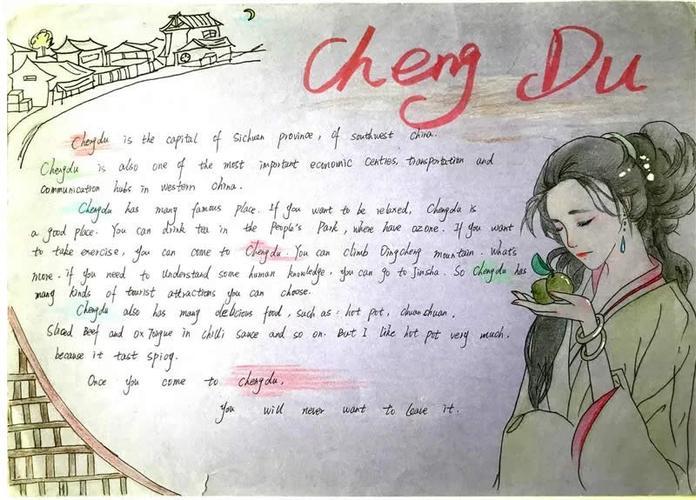 Cheng Du
Chengdu is the capital of Sichuan province, of southwest China.
Chengdu is also one of the most important economic centres, transportation and
communication hubs in western China.
Chengdu has many famous place. If you want to be relaxed, Chengdu is
a good place. You can drink tea in the People's Park, where have ozone. If you want
to take exercise, you can come to Chengdu. You can climb Qingcheng mountain. What's
more. if you need to understand some human knowledge, you can go to Jinsha. So Chengdu has
many kinds of tourist attractions you can choose.
Chengdu also has many delicious food, such as : hot pot, chuanchuan.
Sliced Beef and ox Tongue in chilli sauce and so on. But I like hot pot very much.
because it tast spicy.
Once you come to chengdu,
you will never want to leave it.